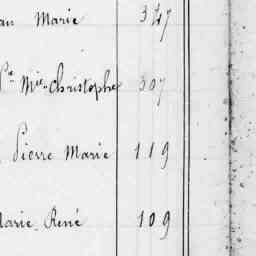 Marie 347
Pre Mie-Christophe 307
Pierre Marie 119
Marie René 109